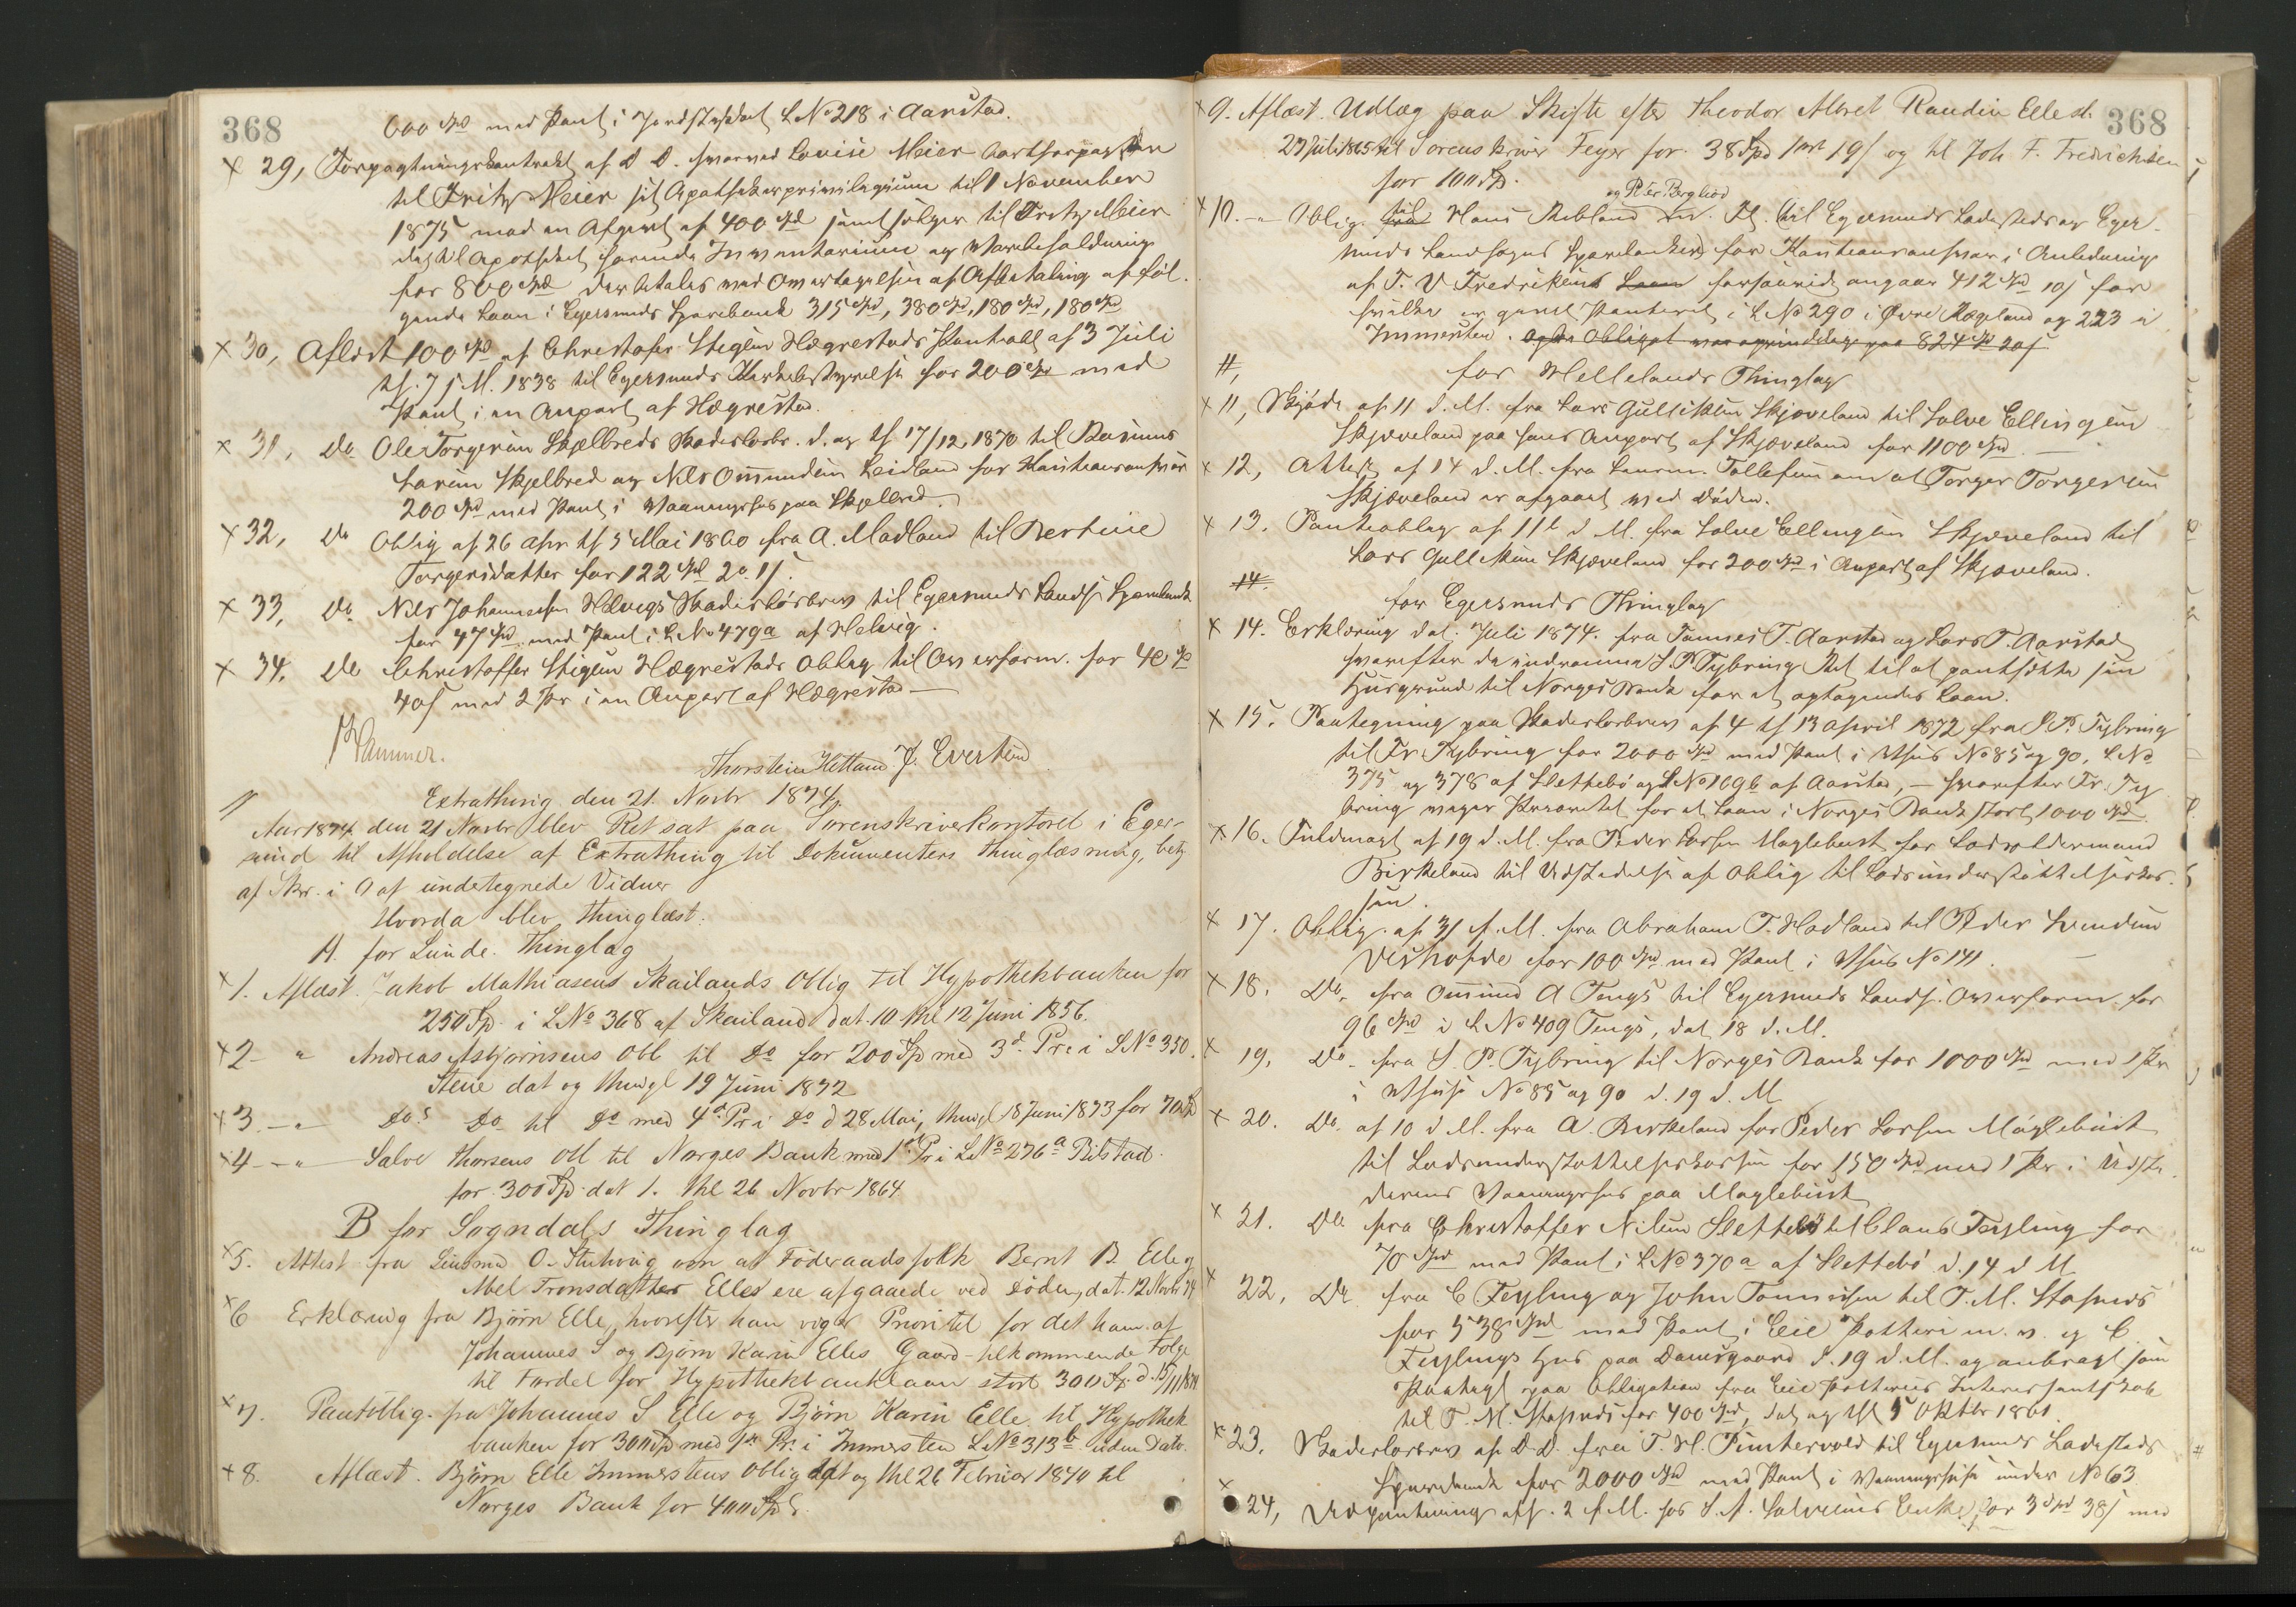 368
600 Spd med Pant i Jordstykket L No 218 i Aarstad.
× 29, Forpagtningskontrakt af D. D. hvorved Louise Meier bortforpagter
til Fritz Meier sit Apothekerprivilegium til 1 November
1875 mod en Afgivt af 400 Spd samt sælger til Fritz Meier
det til Apotheket hørende Inventarium og Varebeholdning
for 800 Spd der betales ved Overtagelsen af Afbetaling af føl-
gende Laan i Egersunds Sparebank 315 Spd, 380 Spd, 180 Spd, 180 Spd
× 30, Aflæst 100 Spd af Christofer Stigsen Hægrestads Pantobl af 3 Juli
tl. 7 s. M. 1838 til Egersunds Kirkebestyrelse for 200 Spd med
Pant i en Anpart af Hægrestad.
× 31, Do Ole Torgersen Skjelbreds Skadesløsbr. d. og tl 17/12 1870 til Rasmus
Larsen Skjelbred og Nils Ommundsen Leidland for Kautionsansvar
200 Spd med Pant i Vaaningshus paa Skjelbred.
× 32, Do Oblig af 26 Apr tl 5 Mai 1860 fra A. Madland til Bertine
Torgersdatter for 122 Spd 2o 1s.
× 33, Do Nils Johannesen Helvigs Skadesløsbrev til Egersunds Lands. Sparebank
for 47 Spd med Pant i L No 479a af Helvig.
× 34, Do Christoffer Stigsen Hægrestads Oblig til Overform. for 40 Spd
40s med 2 Pr i en Anpart af Hægrestad —
Thorstein Hetland J. Evertsen
Extrathing den 21. Novbr 1874.
Aar 1874 den 21 Novbr blev Ret sat paa Sorenskriverkontoret i Eger-
sund til Afholdelse af Extrathing til Dokumenters Thinglæsning, betj
af Skr. i O af undertegnede Vidner
Hvorda blev thinglæst.
A. for Lunde Thinglag
× 1. Aflæst. Jakob Mathiasens Skailands Oblig til Hypothekbanken for
250 Spd i LNo 368 af Skailand dat. 10 thl 12 Juni 1856.
× 2 - " Andreas Asbjørnsens Obl til Do for 200 Spd med 3d Pr. i LNo 350.
Stene dat og thingl 19 Juni 1872
× 3. - " Dos Do til Do med 4d Pr i Do d 28 Mai, thingl 18 Juni 1873 for 70 Spd
× 4 - " Salve Thorsens Obl til Norges Bank med 1ste Pr i LNo 276a Bilstad.
for 300 Spd dat 1. thl 26 Novbr 1864
B for Sogndals Thinglag
× 5. Attest fra Lensmd O. Stuhaug om at Føderaadsfolk Bernt B Elle og
Abel Tronsdatter Elles ere afgaaede ved Døden, dat. 12 Novbr 74
× 6 Erklæring fra Bjørn Elle, hvorefter han viger Prioritet for det ham af
Johannes S og Bjørn Karin Elles Gaard tilkommende Følge
til Fordel for Hypothekbanklaan stort 300 Sp. d. 15/11 1874
× 7. Pantoblig. fra Johannes S Elle og Bjørn Karin Elle til Hypothek
banken for 300 Spd med 1ste Pr. i Immersten LNo 313b uden Dato.
× 8. Aflæst. Bjørn Elle Immerstens Oblig dat og thl 26 Februar 1870 til
Norges Bank for 400 Spd.
368
× 9. Aflæst. Udlæg paa Skifte efter Theodor Albret Randin Elle d.
27 Juli 1865 til Sorenskriver Feyer for 38 Spd 1 ort 19s og til Joh F. Fredrichsen
for 100 Spd.
og P. Er. Bergliod
× 10. - " Oblig. fra til Hans Rebland til Egersunds Ladesteds og Eger-
sunds Landsogns Sparebanken for Kautionsansvar i Anledning
af T. V Fredriksens Laan forsaavidt angaar 412 Spd 10s for
hvilke er givet Panteret i L No 290 i Øvre Rægeland og 223 i
Immersten. Obligat var oprindelig paa 824 Spd 20s
for Hellelands Thinglag
× 11, Skjøde af 11 d. M. fra Lars Gulliksen Skjæveland til Salve Ellingsen
Skjæveland paa hans Anpart af Skjæveland for 1100 Spd. —
× 12, Attest af 14 d. M. fra Lensm. Tollefsen om at Torger Torgersen
Skjæveland er afgaaet ved Døden.
× 13. Panteoblig af 11te d M. fra Salve Ellingsen Skjæveland til
Lars Gulliksen Skjæveland for 200 Spd i Anpart af Skjæveland.
14.
for Egersunds Thinglag
× 14. Erklæring dat. Juli 1874. fra Tønnes T. Aarstad og Lars T. Aarstad
hvorefter de indrømme S. P Tybring Ret til at pantsætte sin
Husgrund til Norges Bank for et optagendes Laan.
× 15. Paategning paa Skadesløsbrev af 4 tl 13 April 1872 fra S. P. Tybring
til Fr Tybring for 2000 Spd med Pant i Vhus No 85 og 90, L No
375 og 378 af Slettebø og L No 169b af Aarstad, — hvorefter Fr. Ty
bring viger Prioritet for et Laan i Norges Bank stort 1000 Spd
× 16. Fuldmagt af 19 d. M. fra Peder Larsen Maglebust for Lodsoldermand
Birkeland til Udstedelse af Oblig til Lodsunderstøttelseskas-
sen.
× 17. Oblig. af 31 f. M. fra Abraham T. Hadland til Peder Svendsen
for 100 Spd med Pant i Vhus No 141. —
× 18. Do. fra Ommund A Tengs til Egersunds Lands. Overform. for
96 Spd i L No 409 Tengs, dat. 18 d. M.
× 19, Do. fra S. P. Tybring til Norges Bank for 1000 Spd med 1 Pr
i Vhuse No 85 og 90 d. 19 d. M
× 20. Do. af 10 d M. fra A. Birkeland for Peder Larsen Maglebust
til Lodsunderstøttelseskassen for 150 Spd med 1 Pr i Udste
derens Vaaningshus paa Maglebust
× 21. Do fra Christoffer Nilsen Slettebø til Claus Feyling for
70 Spd med Pant i L No 370a af Slettebø d. 14 d M
× 22, Do. fra C. Feyling og John Tønnesen til T. M. Stapnes
for 538 Spd med Pant i Eie Potteri m. v. og C
Feylings Hus paa Damsgaard d. 19 d. M. og anbragt som
Paategn paa Obligation fra Eie Potteries Interessentskab
til T. M. Stapnes for 400 Spd, dat og thl 5 Oktbr 1861.
× 23. Skadesløsbrev af D. D. fra T. H. Puntervold til Egersunds Ladesteds
Sparebank for 2000 Spd med Pant i Vaaningshuse under No 63
× 24, Udpantning aff. 2 f. M. hos S. A. Salvesens Enke for 3 Spd 38s med